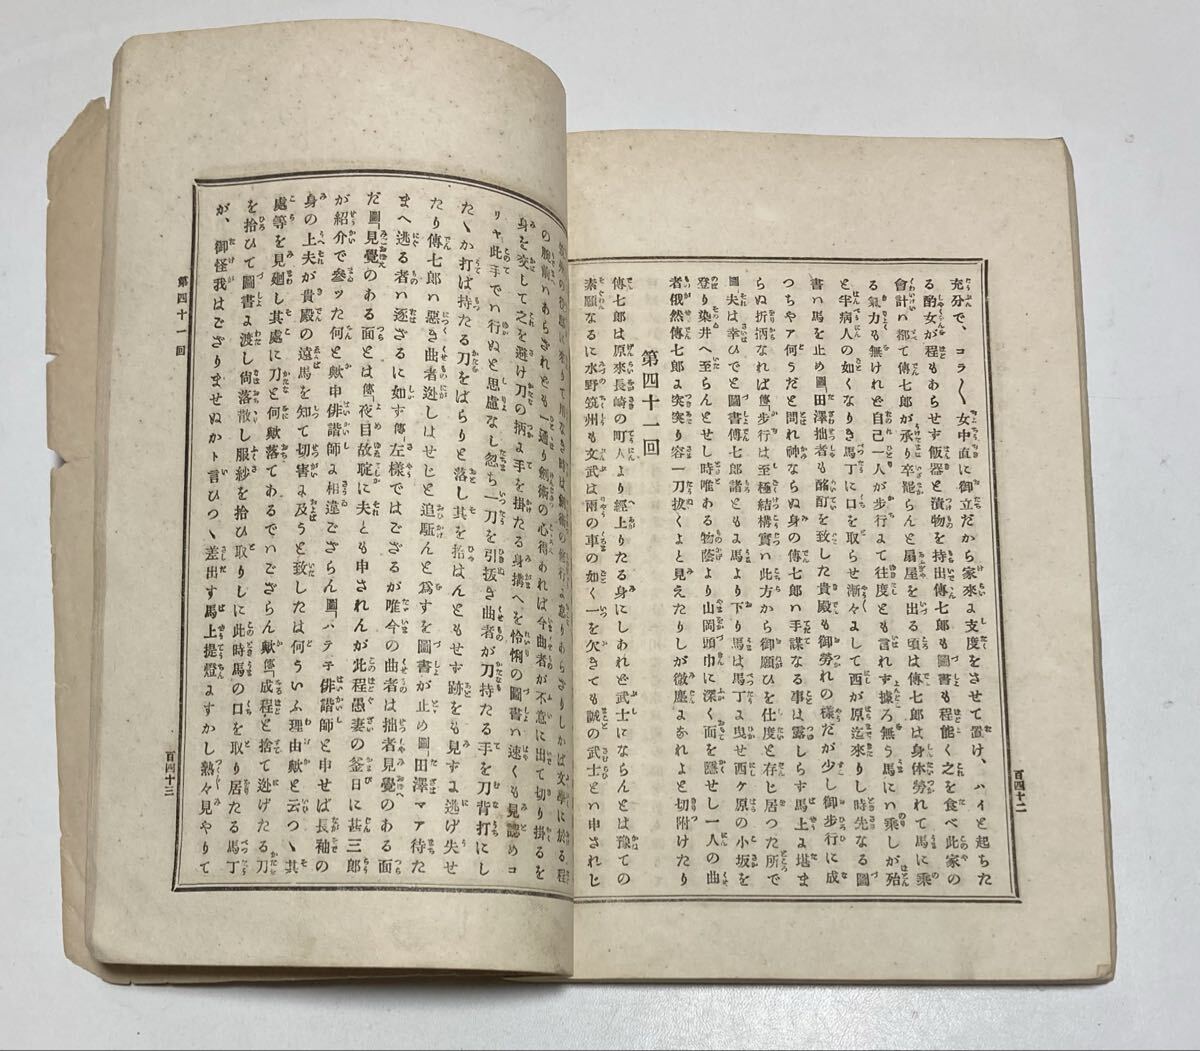 充分で、コラ〳〵女中直に御立だから家來に支度をさせて置け、ハイと起ちた
る酌女が程もあらせず飯器と漬物を持出傳七郎も圖書も程能く之を食べ此家の
會計ハ都て傳七郎が承り卒罷らんと扇屋を出る頃は傳七郎は身体勞れて馬に乘
る氣力も無けれど自己一人が歩行よて往度とも言れず據ろ無う馬にハ乘しが殆
と半病人の如くなりき馬丁に口を取らせ漸々よして西が原迄來りし時先なる圖
書ハ馬を止め圖「田澤拙者も酩酊を致した貴殿も御勞れの樣だが少し御歩行に成
つちやア何うだと問れ神ならぬ身の傳七郎ハ手謀なる事は露しらす馬上よ堪ま
らぬ折柄なれば傳「歩行は至極結構實ハ此方から御願ひを仕度と存じ居つた所で
圖夫は幸ひでと圖書傳七郎諸とも馬より下り馬は馬丁よ曳せ西ヶ原の小坂を
登り染井へ至らんとせし時唯ある物蔭より山岡頭巾に深く面を隱せし一人の曲
者俄然傳七郎よ突突り容一刀抜くよと見えたりしが微塵よなれよと切附けたり
第四十一回
傳七郎は原來長崎の町人より經上りたる身にしあれど武士にならんとは豫ての
素願なるに水野筑州も文武は兩の車の如く一を欠きても誠の武士とい申されじ
百四十二
の腕前ハあらざれども一通り劍術の心得あれば今曲者が不意に出て切り掛るを
身を交して之を避け刀の柄よ手を掛たる身搆へを怜悧の圖書ハ速くも見認めコ
リャ此手でハ行ぬと思慮なし忽ち一刀を引拔き曲者が刀持たる手を刀背打にし
たゝか打ば持たる刀をばらりと落し其を拾はんともせず跡をも見すよ逃げ失せ
たり傳七郎ハ惡き曲者迯しはせじと追駈んと爲すを圖書が止め圖「田澤マア待た
まへ逃る者ハ逐ざるに如す傳「左樣ではござるが唯今の曲者は拙者見覺のある面
だ圖「見覺のある面とは傳「夜目故聢に夫とも申されんが此程愚妻の釜日に甚三郎
が紹介で參ッた何と歟申俳諧師よ相違ござらん圖「ハテ子俳諧師と申せば長袖の
身の上夫が貴殿の遠馬を知て切害よ及うと致したは何うハふ理由歟と云つゝ其
處等を見廻し其處に刀と何歟落てあるでハござらん歟傳「成程と捨て迯げたる刀
を拾ひて圖書よ渡し尙落散し服紗を拾ひ取りしに此時馬の口を取り居たる馬丁
が、御怪我はござりませぬかト言ひつゝ差出す馬上提燈よすかし熟々見やりて
第四十一回
百四十三